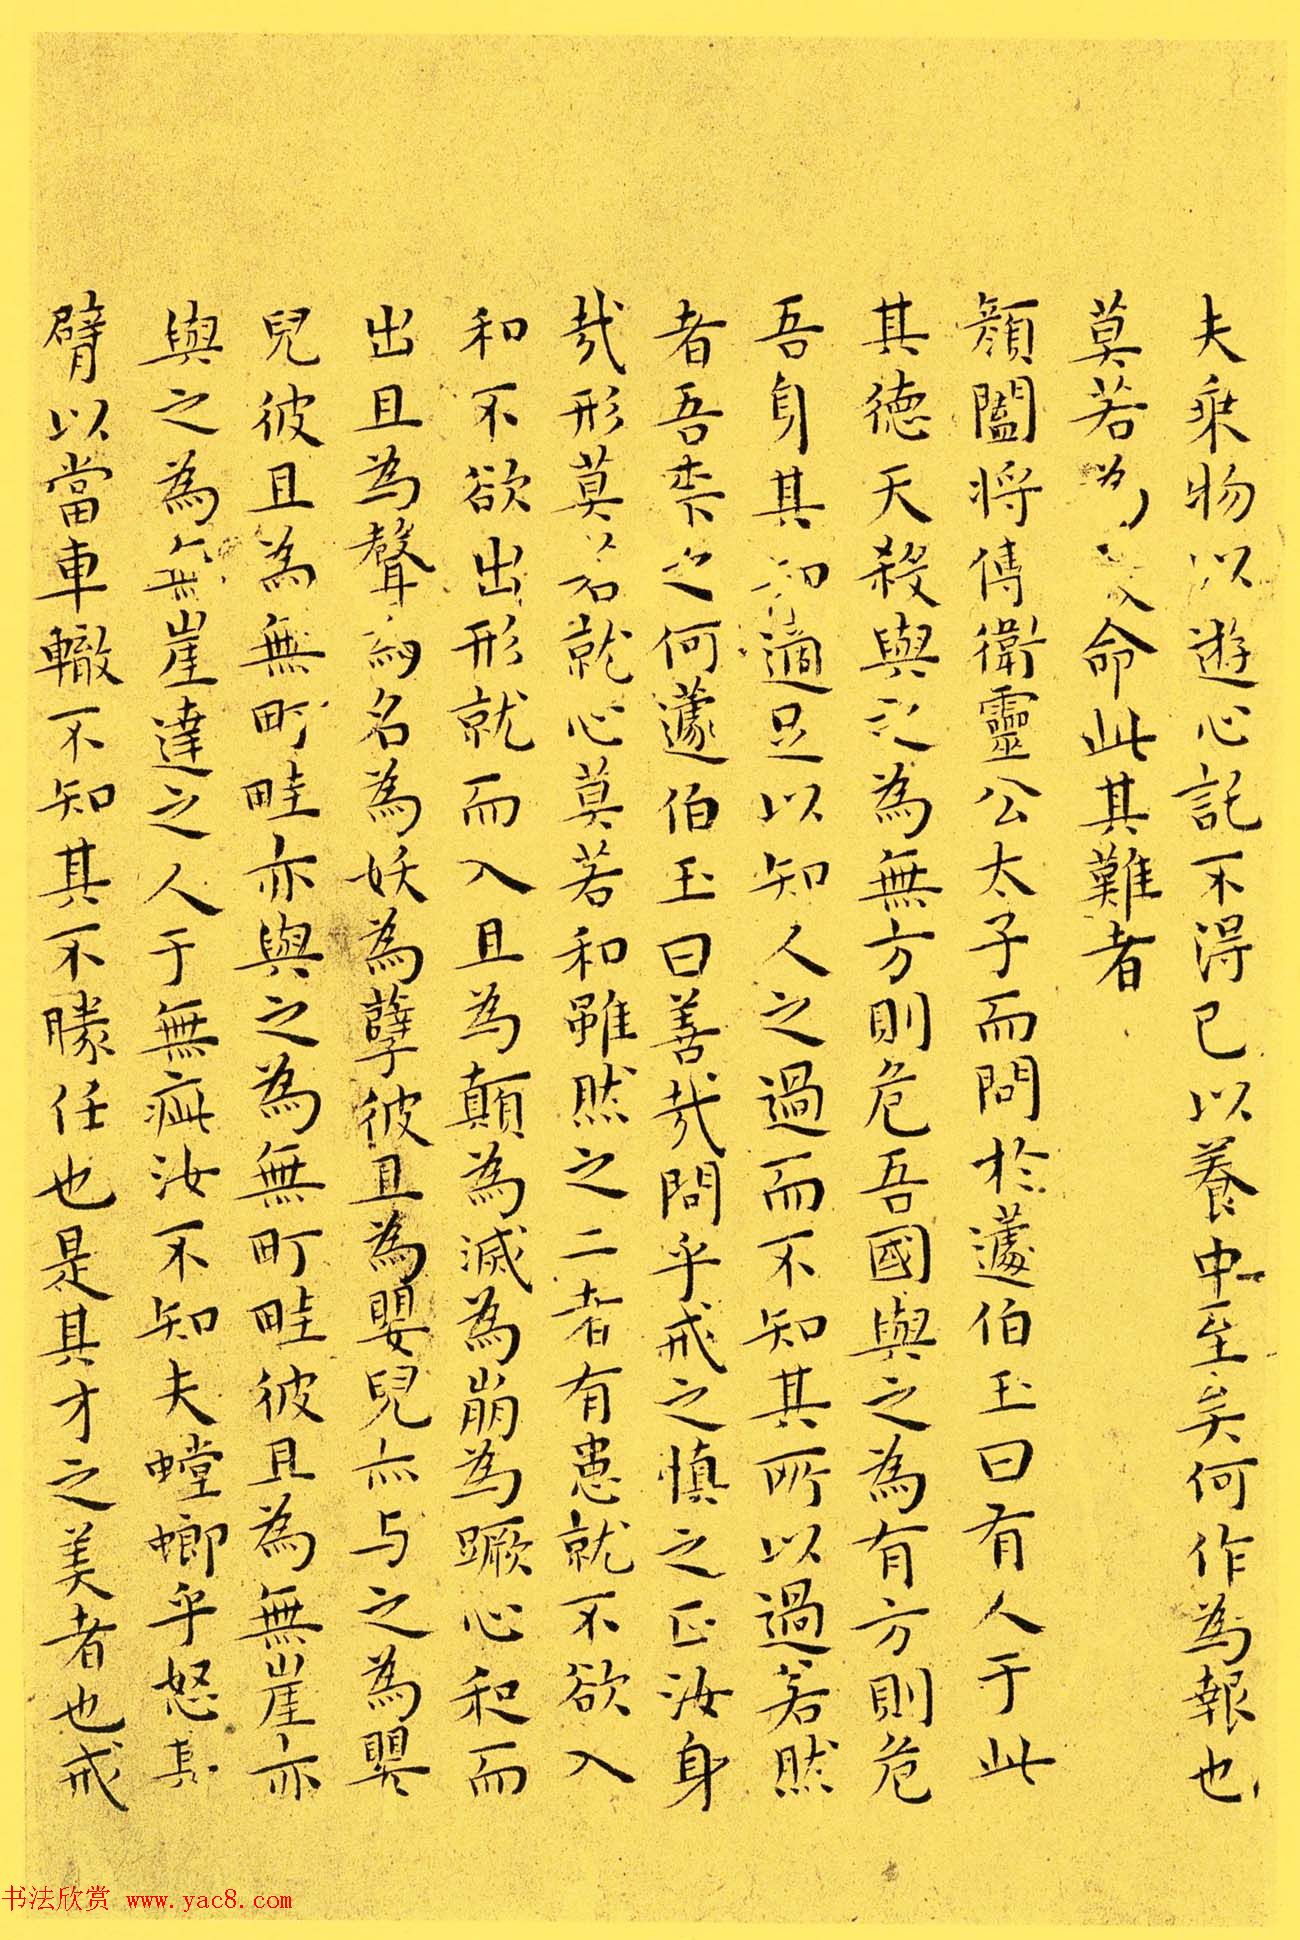 夫乘物以遊心託不得已以養中至矣何作為報也
莫若為致命此其難者
顏闔將傅衛靈公太子而問於蘧伯玉曰有人于此
其德天殺與之為無方則危吾國與之為有方則危
吾身其知適足以知人之過而不知其所以過若然
者吾柰之何蘧伯玉曰善哉問乎戒之慎之正汝身
哉形莫若就心莫若和雖然之二者有患就不欲入
和不欲出形就而入且為顛為滅為崩為蹶心和而
出且為聲為名為妖為孽彼且為嬰兒亦与之為嬰
兒彼且為無町畦亦與之為無町畦彼且為無崖亦
與之為無崖達之人于無疵汝不知夫螳螂乎怒其
臂以當車轍不知其不勝任也是其才之美者也戒
书法欣赏 www.yac8.com